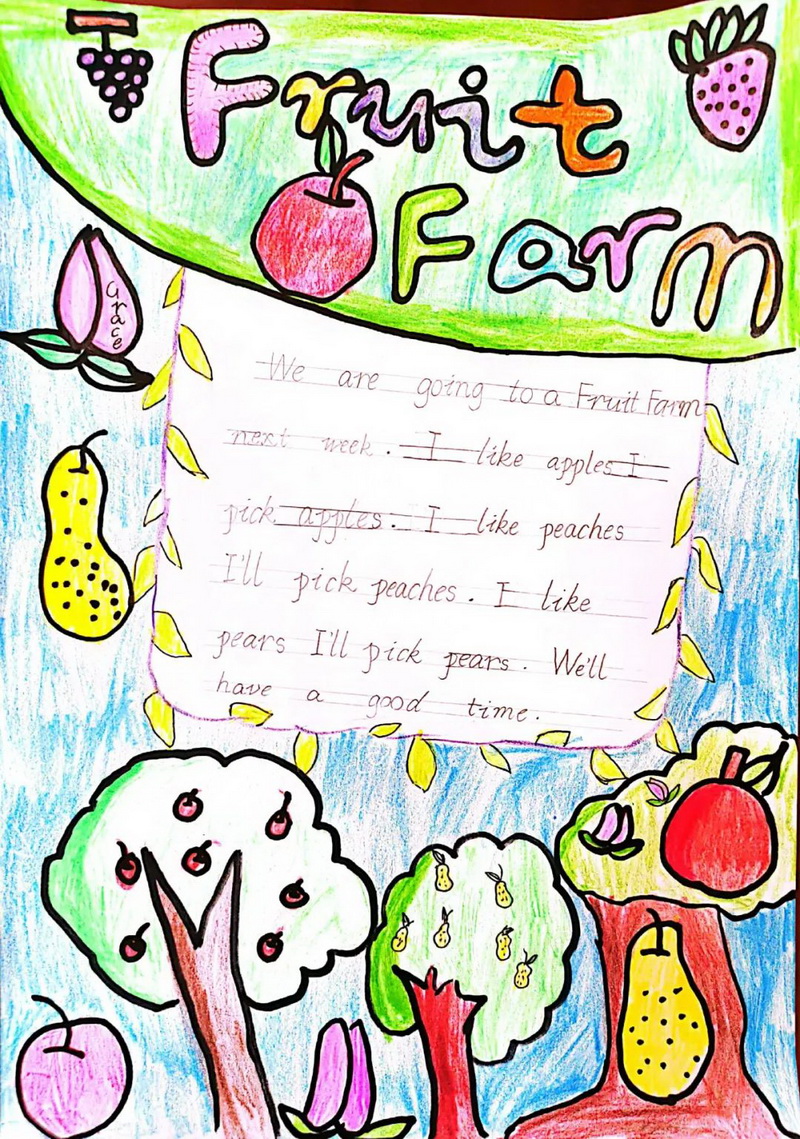 Fruit
Farm
Grace
We are going to a Fruit Farm
next week. I like apples I
pick apples. I like peaches
I'll pick peaches. I like
pears I'll pick pears. We'll
have a good time.